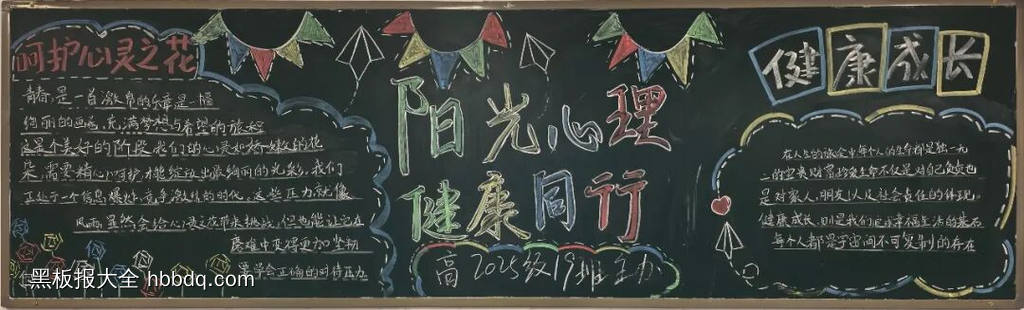 呵护心灵之花
青春,是一首激昂的乐章是一幅
绚丽的画卷,充满梦想与希望的旅程
这是个美好的阶段我们的心灵如娇嫩的花
朵,需要精心呵护,才能绽放出最绚丽的光彩,我们
正处于一个信息爆炸,竞争激烈的时代,这些压力就像
风雨,虽然会给心灵之花带来挑战,但也能让它在
磨难中变得更加坚韧
要学会正确的对待压力
阳光心理
健康同行
高2025级19班主办
健康成长
在人生的旅途中每个人的生命都是独一无
二的宝贵财富珍爱生命不仅是对自己负责也
是对家人、朋友以及社会责任的体现,
健康成长,则是我们追求幸福生活的基石
每个人都是宇宙间不可复制的存在
黑板报大全 hbbdq.com